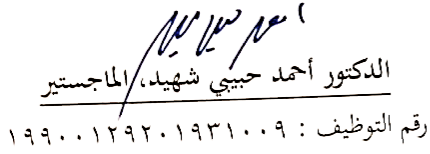 الدكتور أحمد حبيبي شهيد، الماجستير
رقم التوظيف : ١٩٩٠٠١٢٩٢٠١٩٣١٠٠٩